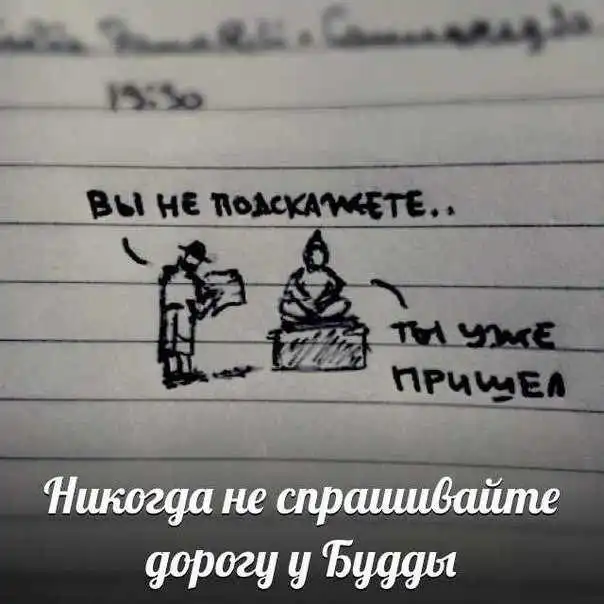 19:30
ВЫ НЕ ПОДСКАЖЕТЕ..
ТЫ УЖЕ
ПРИШЕЛ
Никогда не спрашивайте
дорогу у Будды